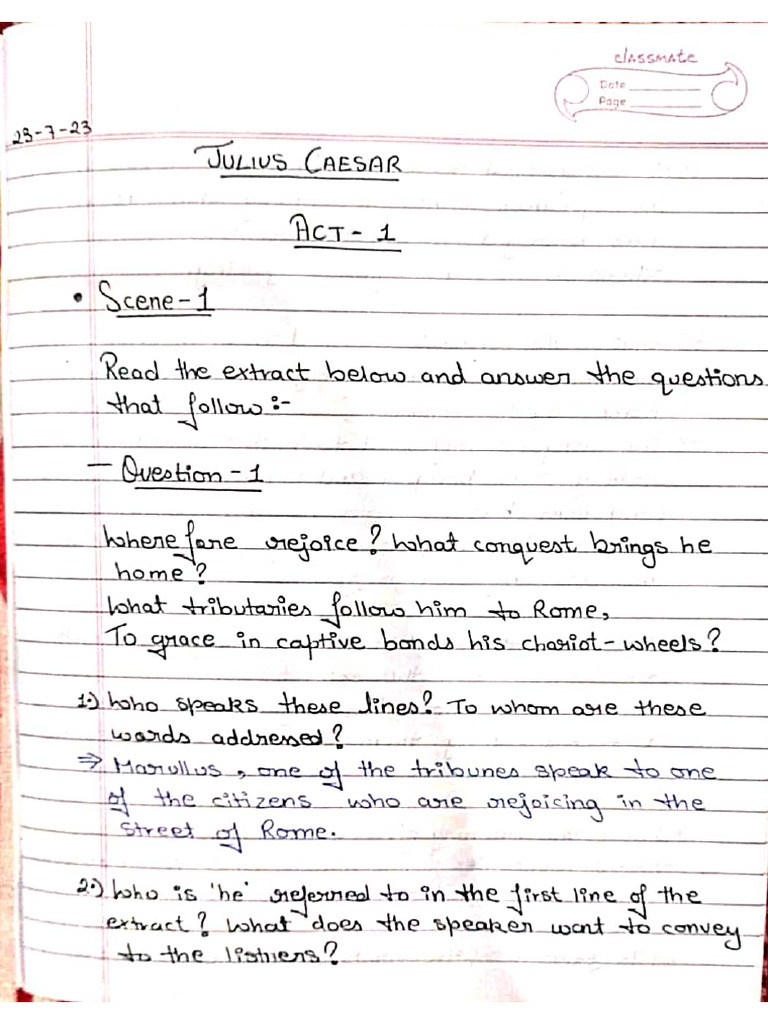 classmate
Date
Page
23-7-23
JULIUS CAESAR
ACT - 1
• Scene - 1
Read the extract below and answer the questions
that follow :-
— Question - 1
Wherefore rejoice? What conquest brings he
home?
What tributaries follow him to Rome,
To grace in captive bonds his chariot-wheels?
1.) Who speaks these lines? To whom are these
words addressed?
⇒ Marullus, one of the tribunes speak to one
of the citizens who are rejoicing in the
street of Rome.
2.) Who is 'he' referred to in the first line of the
extract? What does the speaker want to convey
to the listners?